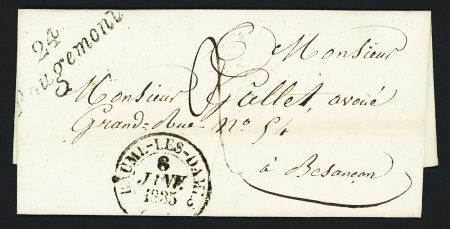 24
Rougemont
Monsieur
Monsieur Gallet, avoué
Grand-Rue nº 54
à Besançon
BAUME-LES-DAMES
6
JANV
1835